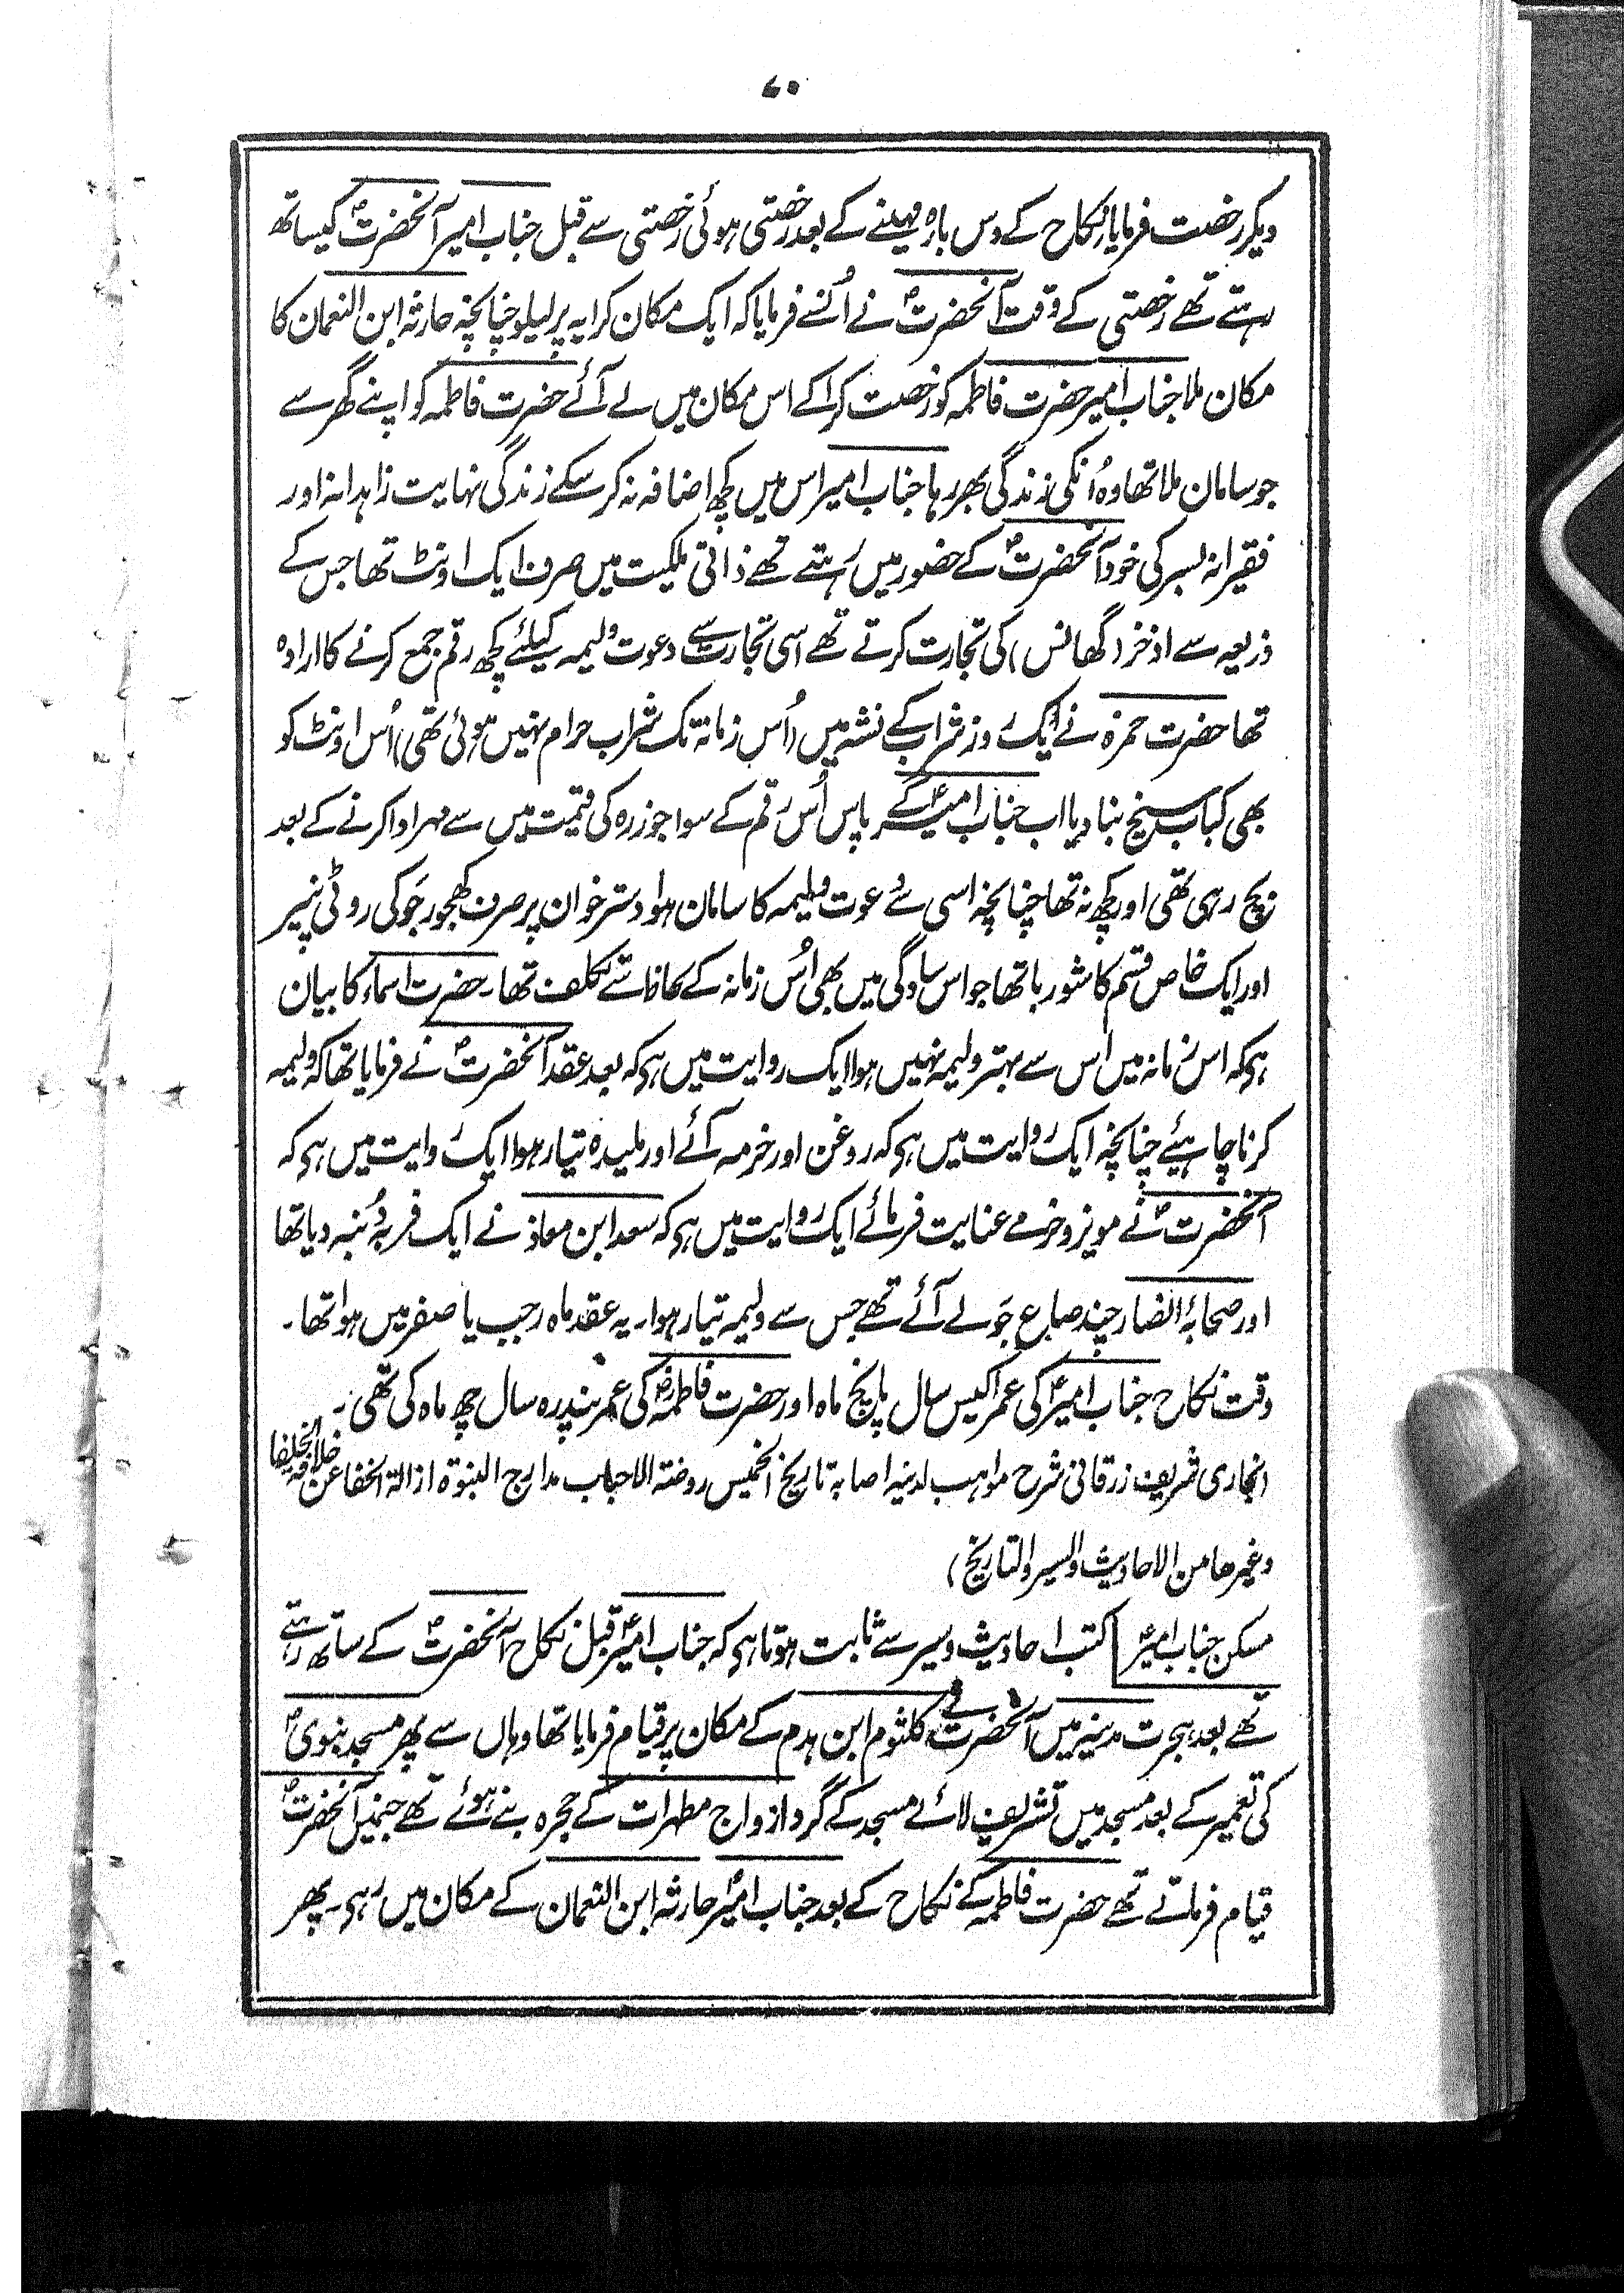 ۷۰
دیکر رخصت فرمایا نکاح کے دس بارہ مہینے کے بعد رخصتی ہوئی رخصتی سے قبل جناب امیر آنحضرتؐ کیساتھ
رہتے تھے رخصتی کے وقت آنحضرتؐ نے اُنسے فرمایا کہ ایک مکان کرایہ پر لیلو چنانچہ حارثہ ابن النعمان کا
مکان ملا جناب امیر حضرت فاطمہ کو رخصت کرا کے اس مکان میں لے آئے حضرت فاطمہ کو اپنے گھر سے
جو سامان ملا تھا وہ اُنکی زندگی بھر رہا جناب امیر اس میں کچھ اضافہ نہ کر سکے زندگی نہایت زاہدانہ اور
فقیرانہ بسر کی خود آنحضرتؐ کے حضور میں رہتے تھے ذاتی ملکیت میں صرف ایک اونٹ تھا جس کے
ذریعہ سے اذخر (گھانس) کی تجارت کرتے تھے اسی تجارت سے دعوت ولیمہ کیلئے کچھ رقم جمع کرنے کا ارادہ
تھا حضرت حمزہ نے ایک روز شراب کے نشہ میں (اُس زمانہ تک شراب حرام نہیں ہوئی تھی) اُس اونٹ کو
بھی کباب سیخ بنا دیا اب جناب امیرؑ کے پاس اُس رقم کے سوا جو زرہ کی قیمت میں سے مہر ادا کرنے کے بعد
بچ رہی تھی اور کچھ نہ تھا چنانچہ اسی سے دعوت ولیمہ کا سامان ہوا دسترخوان پر صرف کھجور جَو کی روٹی پنیر
اور ایک خاص قسم کا شوربا تھا جو اس سادگی میں بھی اُس زمانہ کے لحاظ سے تکلف تھا۔ حضرت اسماء کا بیان
ہی کہ اس زمانہ میں اس سے بہتر ولیمہ نہیں ہوا ایک روایت میں ہی کہ بعد عقد آنحضرتؐ نے فرمایا تھا کہ ولیمہ
کرنا چاہیئے چنانچہ ایک روایت میں ہی کہ روغن اور خرمہ آئے اور ملیدہ تیار ہوا ایک روایت میں ہی کہ
آنحضرتؐ نے مویز و خرمے عنایت فرمائے ایک روایت میں ہی کہ سعد ابن معاذ نے ایک فربہ دُنبہ دیا تھا
اور صحابۂ انصار چند صاع جَو لے آئے تھے جس سے ولیمہ تیار ہوا۔ یہ عقد ماہ رجب یا صفر میں ہوا تھا۔
وقت نکاح جناب امیرؑ کی عمر اکیس سال پانچ ماہ اور حضرت فاطمہؓ کی عمر پندرہ سال چھ ماہ کی تھی۔
(بخاری شریف زرقانی شرح مواہب لدنیہ اصابہ تاریخ الخمیس روضتہ الاحباب مدارج النبوۃ ازالۃ الخفا عن خلافۃ الخلفا
وغیرھا من الاحادیث والسیر والتاریخ)
مسکن جناب امیرؑ کتب احادیث و سیر سے ثابت ہوتا ہی کہ جناب امیرؑ قبل نکاح آنحضرتؐ کے ساتھ رہتے
تھے بعد ہجرت مدینہ میں آنحضرتؐ نے کلثوم ابن ہدم کے مکان پر قیام فرمایا تھا وہاں سے پھر مسجد نبویؐ
کی تعمیر کے بعد مسجد میں تشریف لائے مسجد کے گرد ازواج مطہرات کے حجرہ بنے ہوئے تھے جنمیں آنحضرتؐ
قیام فرماتے تھے حضرت فاطمہ کے نکاح کے بعد جناب امیرؑ حارثہ ابن النعمان کے مکان میں رہی۔ پھر